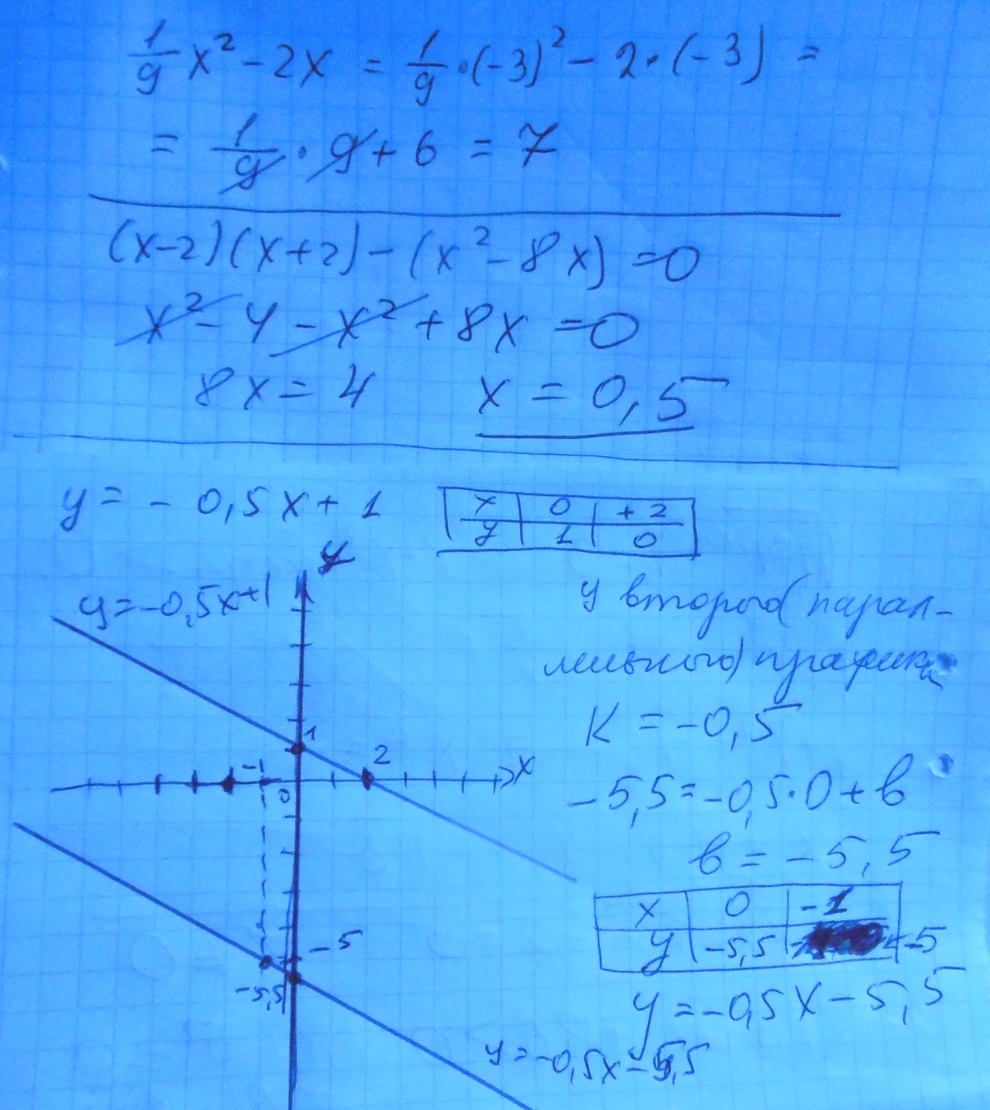 1/9 x² - 2x = 1/9 · (-3)² - 2 · (-3) =
= 1/9 · 9 + 6 = 7
(x-2)(x+2) - (x² - 8x) = 0
x² - 4 - x² + 8x = 0
8x = 4 x = 0,5
y = - 0,5x + 1
x 0 +2
y 1 0
y
y=-0,5x+1
У второго (парал-
лельного) графика
K = -0,5
1
-1 0 2 x
-5,5 = -0,5·0 + в
в = -5,5
x 0 -1
y -5,5 -5
-5
-5,5
y = -0,5x - 5,5
y = -0,5x - 5,5